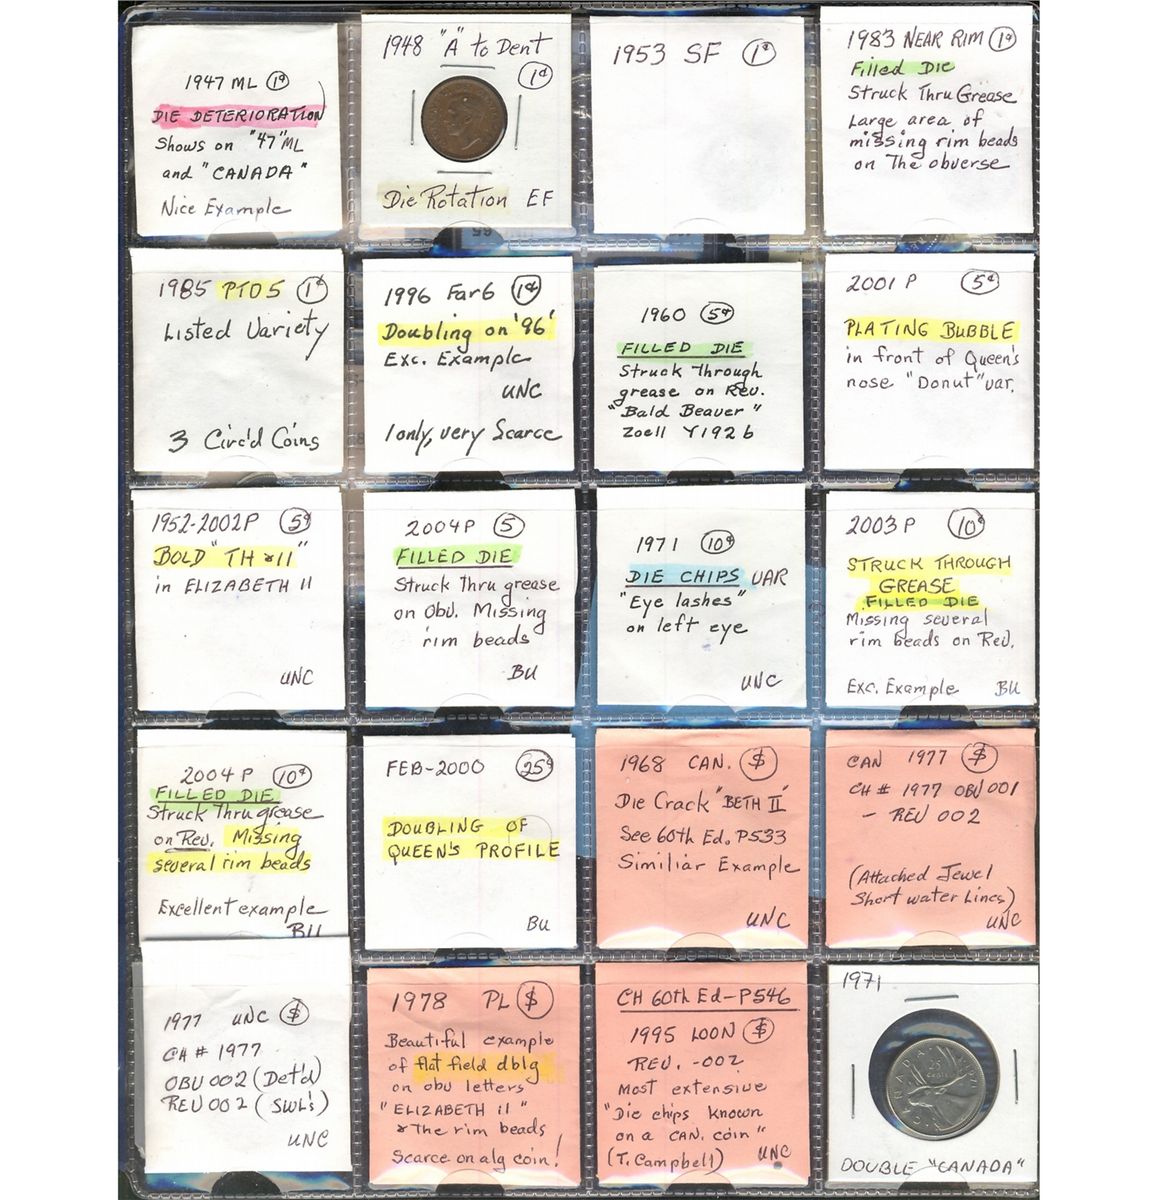 1947 ML 1¢
DIE DETERIORATION
Shows on "47" ML
and "CANADA"
Nice Example
1948 "A" to Dent
1¢
Die Rotation EF
1953 SF 1¢
1983 NEAR RIM 1¢
Filled Die
Struck Thru Grease
Large area of
missing rim beads
on The obverse
1985 PTD5 1¢
Listed Variety
3 Circ'd Coins
1996 Far6 1¢
Doubling on '96'
Exc. Example
UNC
1 only, very Scarce
1960 5¢
FILLED DIE
Struck Through
grease on Rev.
"Bald Beaver"
Zoell Y192b
2001 P 5¢
PLATING BUBBLE
in front of Queen's
nose "Donut" var.
1952-2002P 5¢
BOLD "TH & II"
in ELIZABETH II
UNC
2004P 5
FILLED DIE
Struck Thru grease
on Obv. Missing
rim beads
BU
1971 10¢
DIE CHIPS VAR
"Eye lashes"
on left eye
UNC
2003 P 10¢
STRUCK THROUGH
GREASE
FILLED DIE
Missing several
rim beads on Rev.
Exc. Example BU
2004 P 10¢
FILLED DIE
Struck Thru grease
on Rev. Missing
several rim beads
Excellent example
BU
FEB-2000 25¢
DOUBLING OF
QUEEN'S PROFILE
BU
1968 CAN. $
Die Crack "BETH II"
See 60th Ed. P533
Similiar Example
UNC
CAN 1977 $
CH # 1977 OBV 001
- REV 002
(Attached Jewel
Short water Lines)
UNC
1977 UNC $
CH # 1977
OBV 002 (Det'd)
REV 002 (SWL's)
UNC
1978 PL $
Beautiful example
of flat field dblg
on obv letters
"ELIZABETH II"
& The rim beads
Scarce on a lg coin!
CH 60th Ed-P546
1995 LOON $
REV. -002
Most extensive
"Die chips known
on a CAN. coin"
(T. Campbell) UNC
1971
CANADA
25
CENTS
1971
DOUBLE "CANADA"